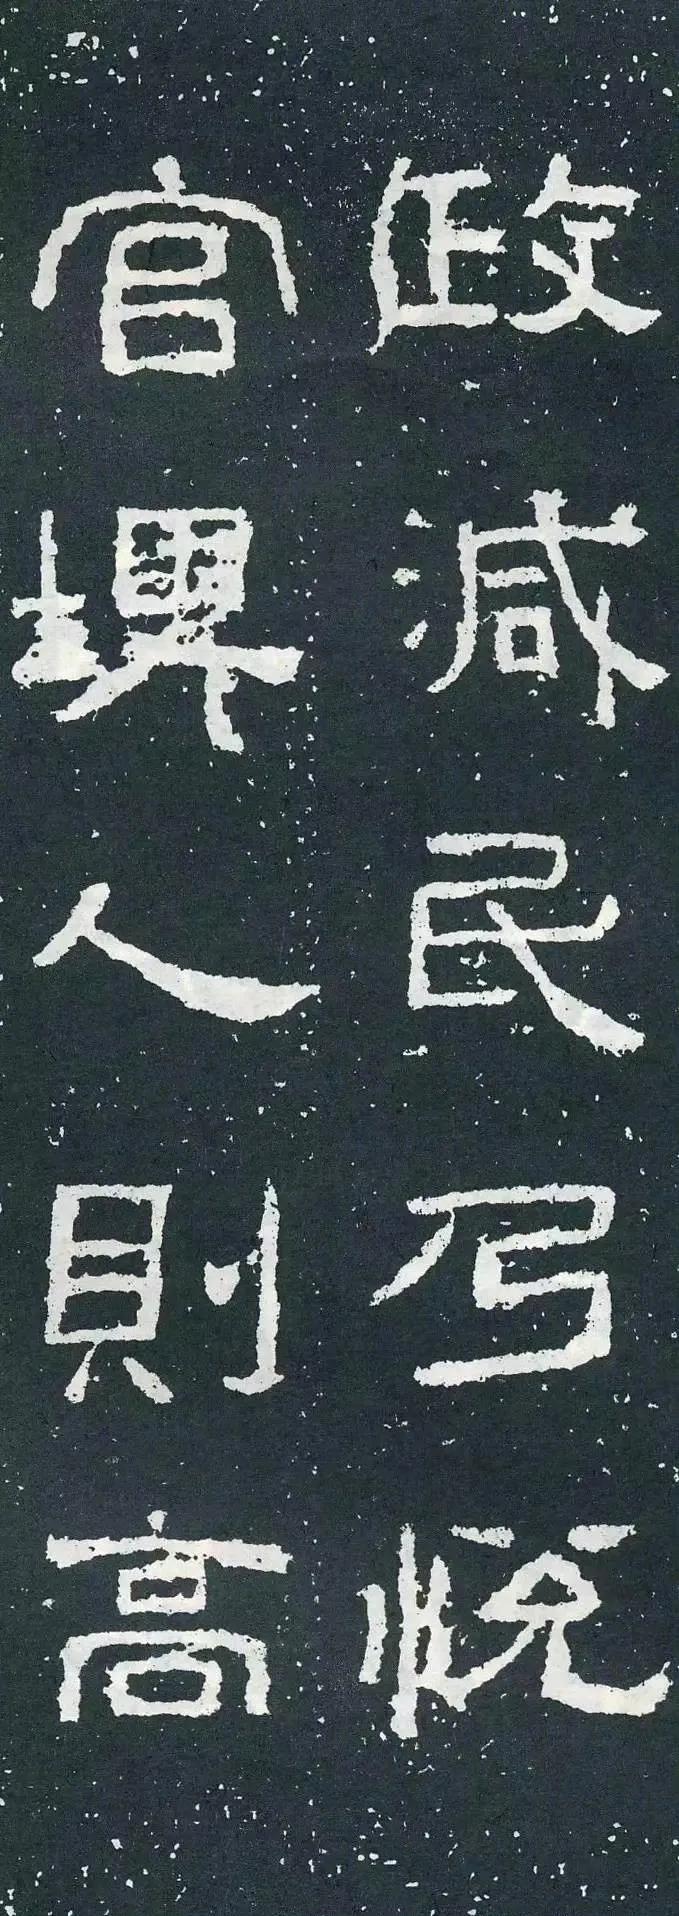 政減民乃悅
官人則高